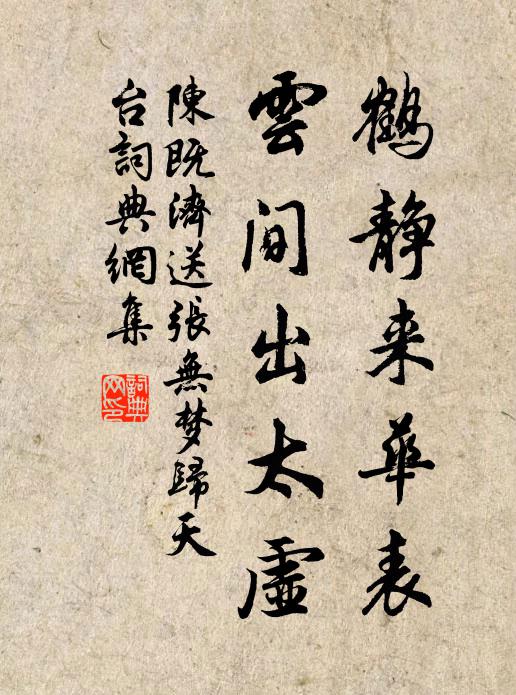 鶴静来華表
雲间出太虛
陳既濟送張無梦歸天
台詞典網集
詞典
网印